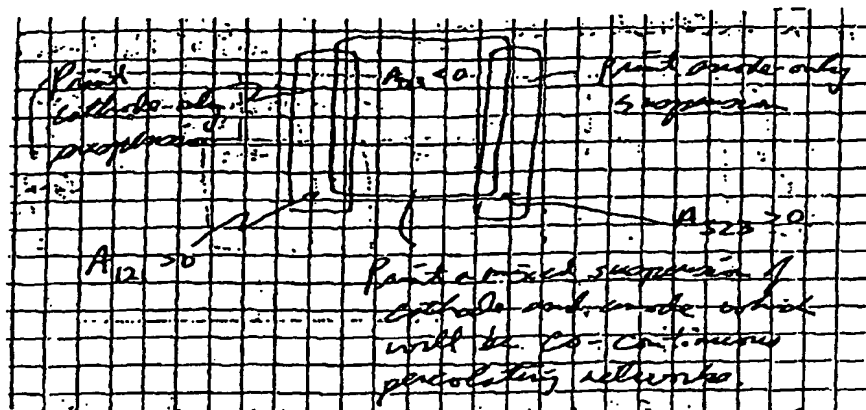 Print
cathode-only
suspension
A₁₂₃ < 0
Print anode-only
suspension
A₁₂ > 0
A₅₂₃ > 0
Print a mixed suspension of
cathode and anode which
will be co-continuous
percolating networks.